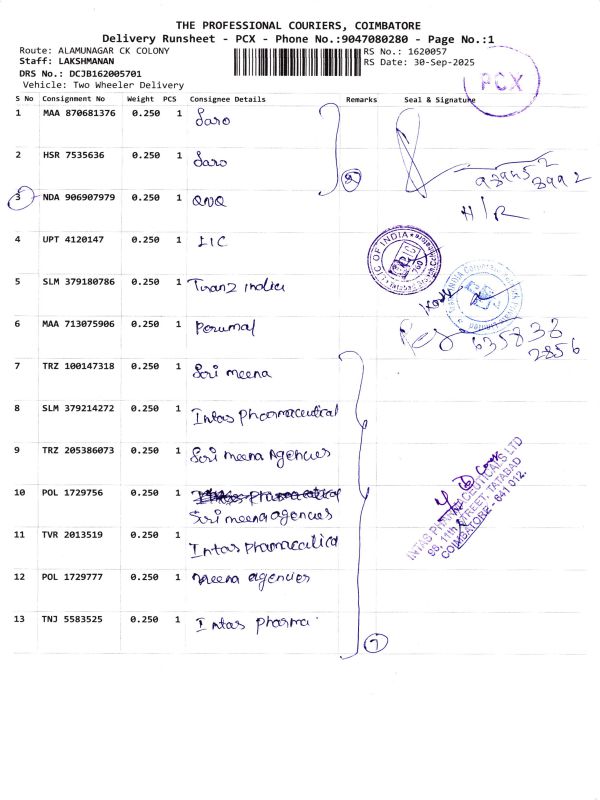 THE PROFESSIONAL COURIERS, COIMBATORE
Delivery Runsheet - PCX - Phone No.:9047080280 - Page No.:1
Route: ALAMUNAGAR CK COLONY
RS No.: 1620057
Staff: LAKSHMANAN
RS Date: 30-Sep-2025
DRS No.: DCJB162005701
Vehicle: Two Wheeler Delivery
PCX
S No Consignment No Weight PCS Consignee Details Remarks Seal & Signature
1 MAA 870681376 0.250 1 Saro
2 HSR 7535636 0.250 1 Saro
2
939452
8992
3 NDA 906907979 0.250 1 QNQ
H/R
4 UPT 4120147 0.250 1 LIC
LIC OF INDIA
5 SLM 379180786 0.250 1 Tranz india
6 MAA 713075906 0.250 1 Perumal
635838
2856
7 TRZ 100147318 0.250 1 Sri meena
8 SLM 379214272 0.250 1 Intas pharmaceutical
9 TRZ 205386073 0.250 1 Sri meena Agencies
10 POL 1729756 0.250 1
Sri meena agencies
INTAS PHARMACEUTICALS LTD
96, 11th STREET, TATABAD
COIMBATORE - 641 012.
11 TVR 2013519 0.250 1 Intas pharmaceutica
12 POL 1729777 0.250 1 meena agencies
13 TNJ 5583525 0.250 1 Intas pharma
7